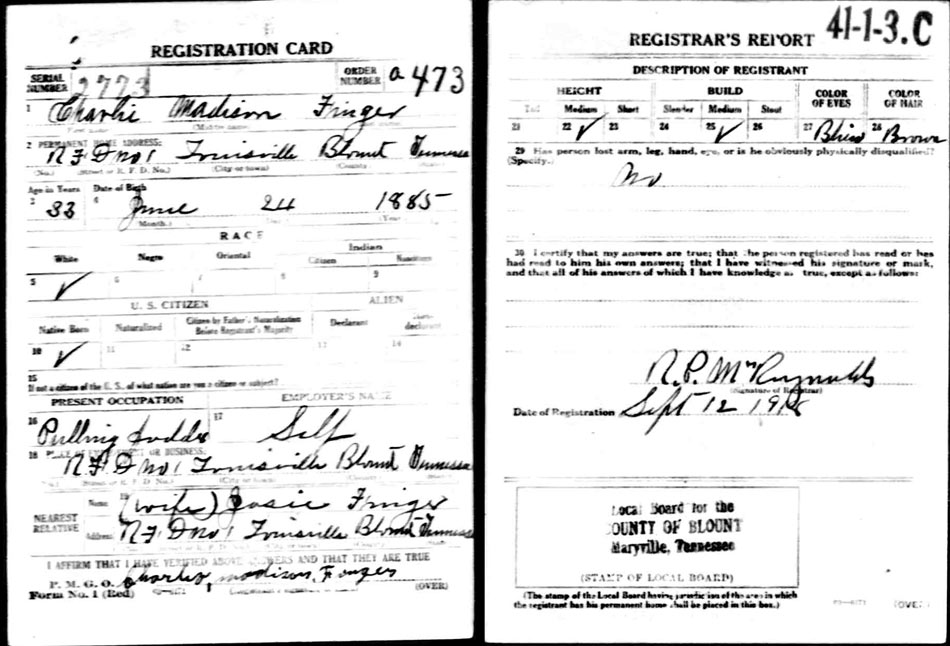 REGISTRATION CARD
SERIAL NUMBER 2773 ORDER NUMBER a 473
1 Charlie Madison Finger
(Middle name)
2 PERMANENT HOME ADDRESS:
R F D no 1 Louisville Blount Tennessee
(No.) (Street or R. F. D. No.) (City or town) (County)
Age in Years Date of Birth
3 33 4 June 24 1885
(Month.) (Day.) (Year.)
RACE
White Negro Oriental Indian
Citizen Noncitizen
5 ✓ 6 7 8 9
U. S. CITIZEN ALIEN
Native Born Naturalized Citizen by Father's Naturalization Before Registrant's Majority Declarant Non-declarant
10 ✓ 11 12 13 14
15
If not a citizen of the U. S., of what nation are you a citizen or subject?
PRESENT OCCUPATION EMPLOYER'S NAME
16 Pulling 17 Self
18 PLACE OF EMPLOYMENT OR BUSINESS:
R F D no 1 Louisville Blount Tennessee
(No.) (Street or R. F. D. No.) (City or town) (County)
NEAREST RELATIVE Name 19 (wife) Josie Finger
Address R F D no 1 Louisville Blount Tennessee
I AFFIRM THAT I HAVE VERIFIED ABOVE ANSWERS AND THAT THEY ARE TRUE
P. M. G. O.
Form No. 1 (Red) madison Finger (OVER)
41-1-3.C
REGISTRAR'S REPORT
DESCRIPTION OF REGISTRANT
HEIGHT BUILD COLOR OF EYES COLOR OF HAIR
Tall Medium Short Slender Medium Stout
21 22 ✓ 23 24 25 ✓ 26 27 Blue 28 Brown
29 Has person lost arm, leg, hand, eye, or is he obviously physically disqualified?
(Specify.)
No
30 I certify that my answers are true; that the person registered has read or has
had read to him his own answers; that I have witnessed his signature or mark,
and that all of his answers of which I have knowledge are true, except as follows:
R. P. McReynolds
(Signature of Registrar)
Date of Registration Sept 12 1918
Local Board for the
COUNTY OF BLOUNT
Maryville, Tennessee
(STAMP OF LOCAL BOARD)
(The stamp of the Local Board having jurisdiction of the area in which
the registrant has his permanent home shall be placed in this box.)
(OVER)